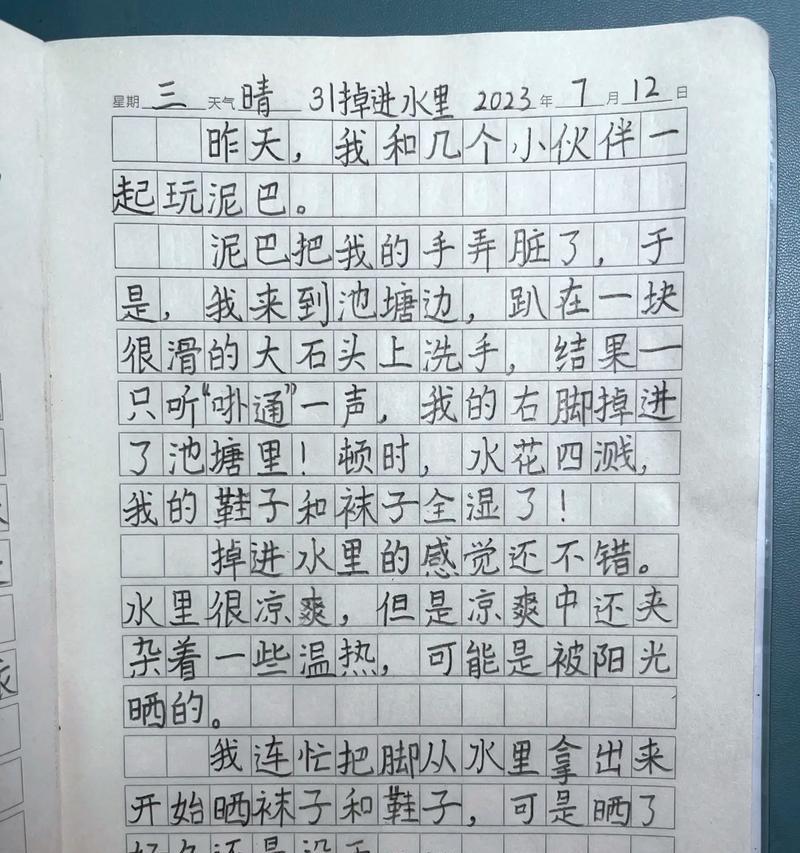 星期 三 天气 晴 31掉进水里 2023年 7月 12日
昨天，我和几个小伙伴一
起玩泥巴。
泥巴把我的手弄脏了，于
是，我来到池塘边，趴在一块
很滑的大石头上洗手，结果一
只听“哧通”一声，我的右脚掉进
了池塘里！顿时，水花四溅，
我的鞋子和袜子全湿了！
掉进水里的感觉还不错。
水里很凉爽，但是凉爽中还夹
杂着一些温热，可能是被阳光
晒的。
我连忙把脚从水里拿出来
开始晒袜子和鞋子，可是晒了